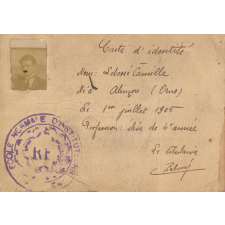 Carte d'identité
Nom: Leboré Camille
Né à Alençon (Orne)
Le 1er juillet 1905
Profession: élève de 4e année
Le titulaire
ECOLE NORMALE D'INSTITUT
RF